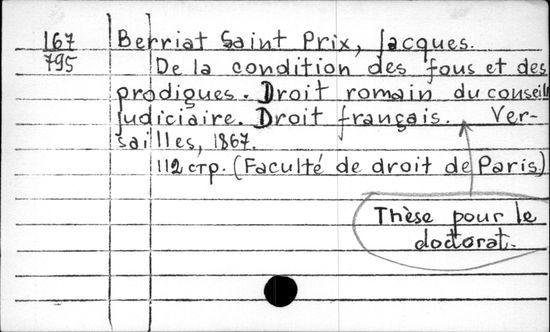 167
795
Berriat Saint Prix, Jacques.
De la condition des fous et des
prodigues. Droit romain du conseil
judiciaire. Droit français. Ver-
sailles, 1867.
112 стр. (Faculté de droit de Paris)
Thèse pour le
doctorat.